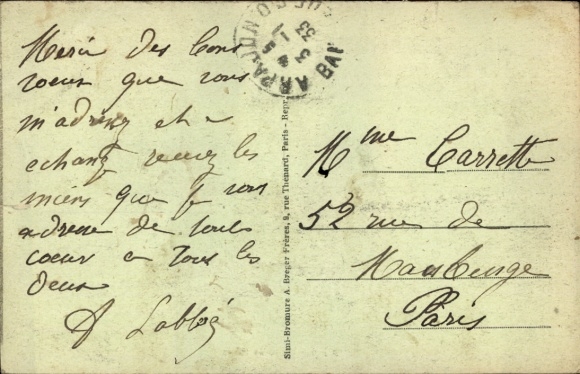 Merci des bons
voeux que vous
m'adrenez et a
echange recevez les
miens que je vous
adresse de tout
coeur a tous les
deux
A Labbé
Mme Carrette
52 rue de
Maubeuge
Paris
Simi-Bromure A. Breger Frères, 9, rue Thénard, Paris - Repr
ARPAJON
3 1
33
BAN